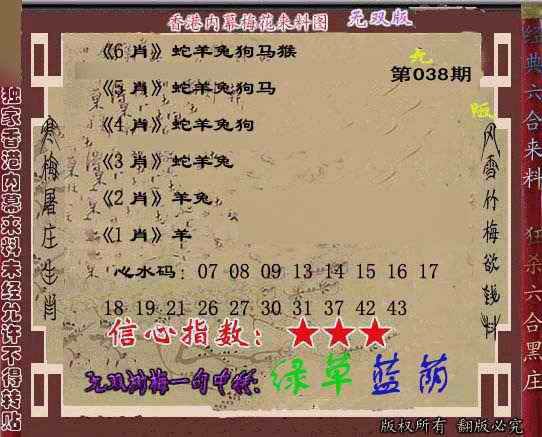 香港内幕梅花来料图 无双版
《6 肖》蛇羊兔狗马猴
第038期
《5 肖》蛇羊兔狗马
《4 肖》蛇羊兔狗
《3 肖》蛇羊兔
《2 肖》羊兔
《1 肖》羊
心水码: 07 08 09 13 14 15 16 17
18 19 21 26 27 30 31 37 42 43
信心指数: ★★★
无双浏梅一句中特: 绿草蓝荫
版权所有 翻版必究
独家香港内幕来料未经允许不得转贴
寒梅屠庄生肖
风雪竹梅欲钱料
经典六合来料 狂杀六合黑庄